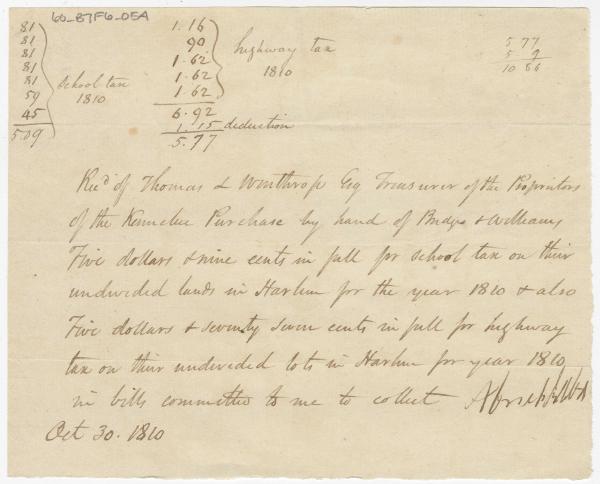 60-B7F6-05A
81
81
81
81
81
59
45
5.09
school tax
1810
1.16
90
1.62
1.62
1.62
6.92
1.15 deduction
5.77
highway tax
1810
5 77
5 9
10 86
Rec'd of Thomas L Winthrop Esq Treasurer of the Proprietors
of the Kennebec Purchase by hand of Bridge & Williams
Five dollars & nine cents in full for school tax on their
undivided lands in Harlem for the year 1810 & also
Five dollars & seventy seven cents in full for highway
tax on their undivided lots in Harlem for year 1810
in bills committed to me to collect
Oct 30. 1810